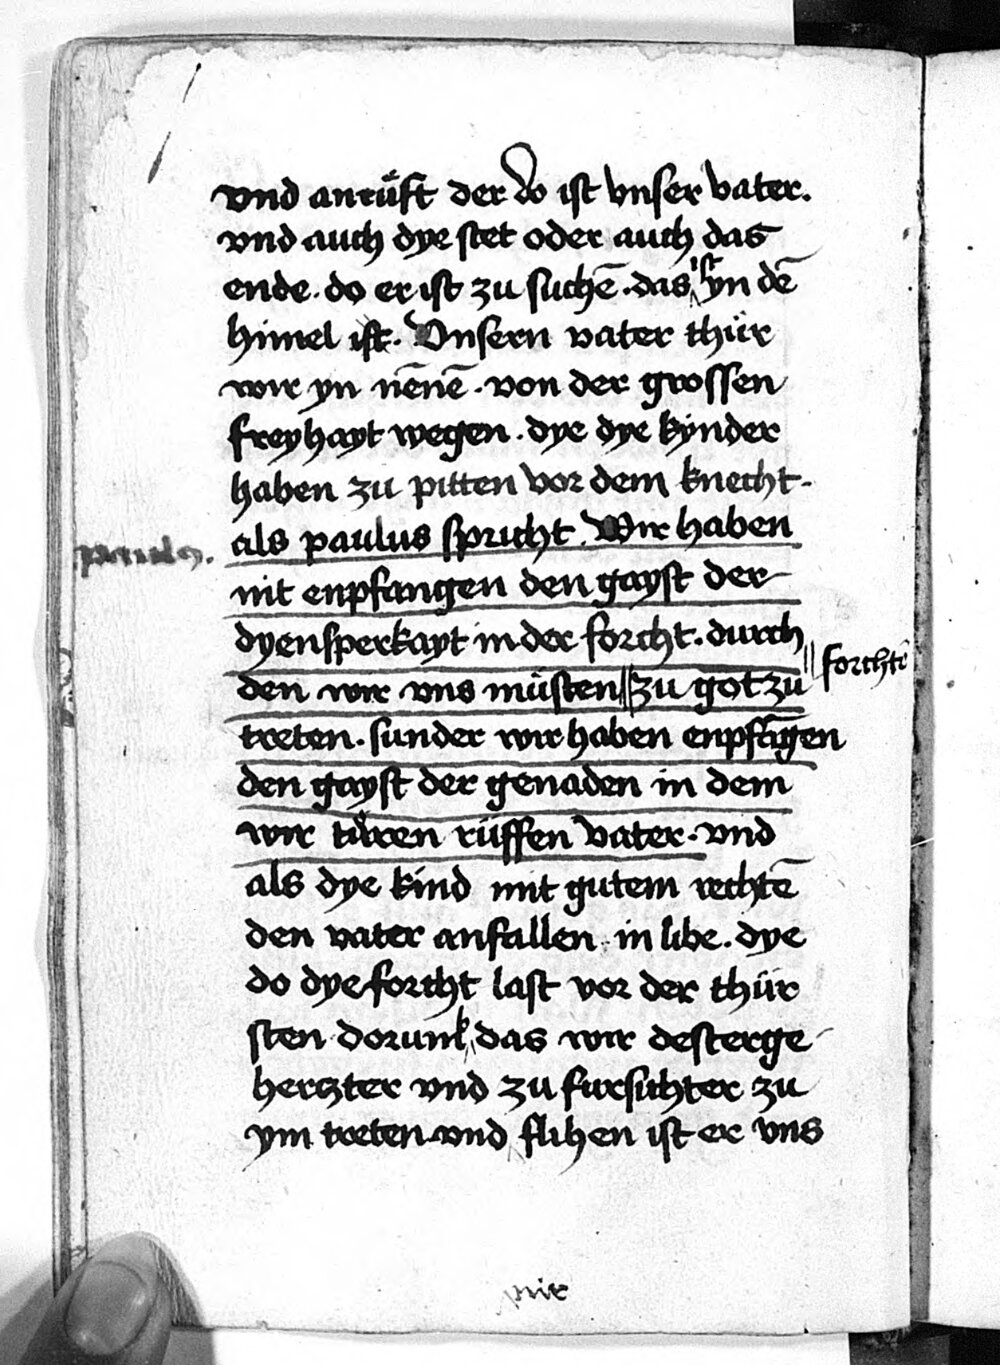 vnd anrüft der do ist vnser vater.
vnd auch dye stet oder auch das
ende. do er ist zu suchē. das ist yn dē
himel ist. Vnsern vater thür
wir yn nēnē. von der grossen
freyhayt wegen. dye dye kynder
haben zu pitten vor dem knecht.
paulus. als paulus spricht. Wir haben
nit enpfangen den gayst der
dyensperkayt in der forcht. durch
den wir vns müsten || zu got zu || forchtē
treten. sunder wir haben enpfāgen
den gayst der genaden in dem
wir türen rüffen vater. vnd
als dye kind mit gutem rechtē
den vater anfallen. in libe. dye
do dye forcht last vor der thür
sten dorumb das wir desterge
herczter vnd zu fursichter zu
ym treten vnd flihen ist er vns
mir